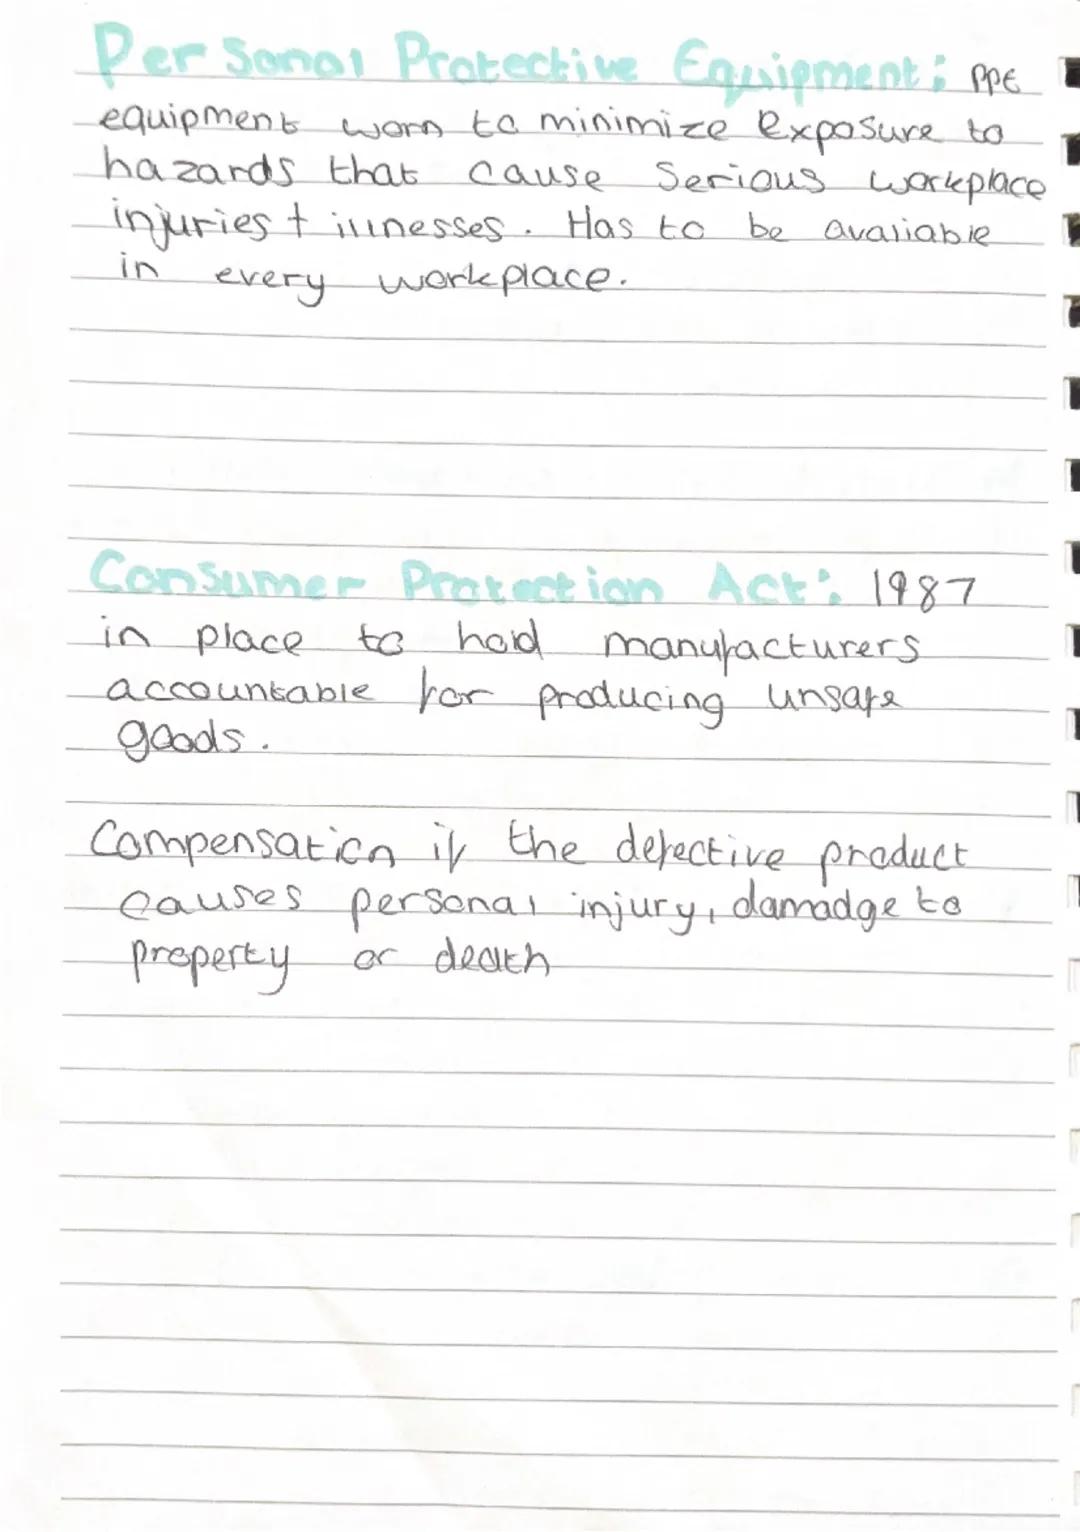 Personal Protective Equipment: PPE
equipment worn to minimize exposure to
hazards that cause serious workplace
injuries + illnesses. Has to be avaliable
in every workplace.
Consumer Protection Act: 1987
in place to hold manufacturers
accountable for producing unsafe
goods.
Compensation if the defective product
causes personal injury, damadge to
property or death